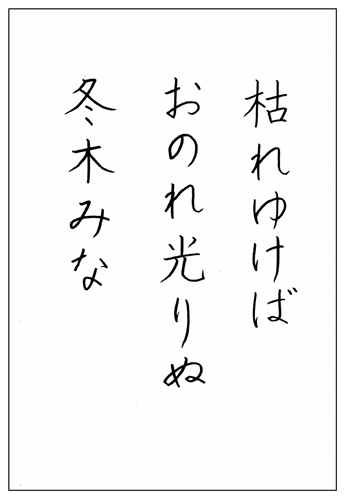 枯れゆけば
おのれ光りぬ
冬木みな